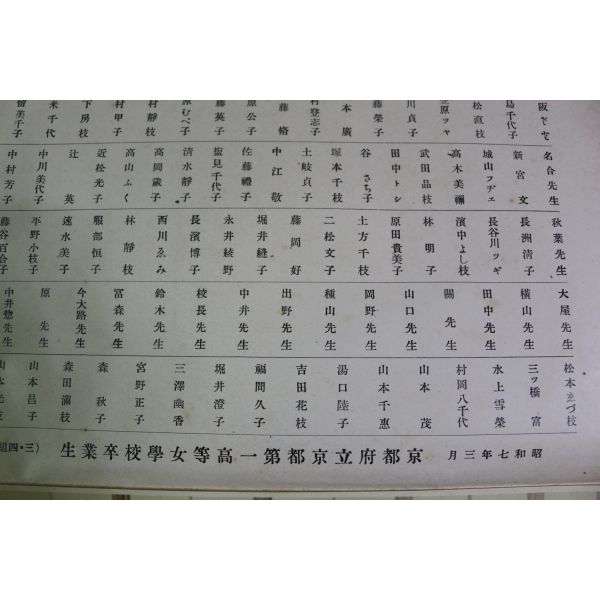 阪とで
島千代子
松直枝
原ツャ
川貞子
藤榮子
本廣
村登志子
藤脩
原公子
藤英子
原むべ子
村靜枝
村甲子
下房枝
米千代
留美千子
名合先生
新宮文
城山フヂェ
高木美禰
武田晶枝
田中トシ
谷さち子
塚本千枝
土岐貞子
中江敬
佐藤禮子
蜑見千代子
清水靜子
高岡歲子
高山ふく
近松光子
辻英
中川美代子
中村芳子
秋葉先生
長洲清子
長谷川ツギ
濱中よし枝
林明子
原田貴美子
土方千枝
二松文子
藤岡好
堀井縫子
永井綾野
長濱博子
西川ゑみ
林靜枝
服部恒子
速水美子
平野小枝子
藤谷百合子
大屋先生
橫山先生
田中先生
陽先生
山口先生
岡野先生
種山先生
出野先生
中井先生
稜長先生
鈴木先生
冨森先生
今大路先生
原先生
中井惣先生
松本ゑづ枝
三ツ橋富
水上雪榮
村岡八千代
山本茂
山本千惠
湯口陸子
吉田花枝
福間久子
堀井澄子
三澤幽香
宮野正子
森秋子
森田滿枝
山本昌子
山本光枝
昭和七年三月 京都府立京都第一高等女學校卒業生 (三・四組